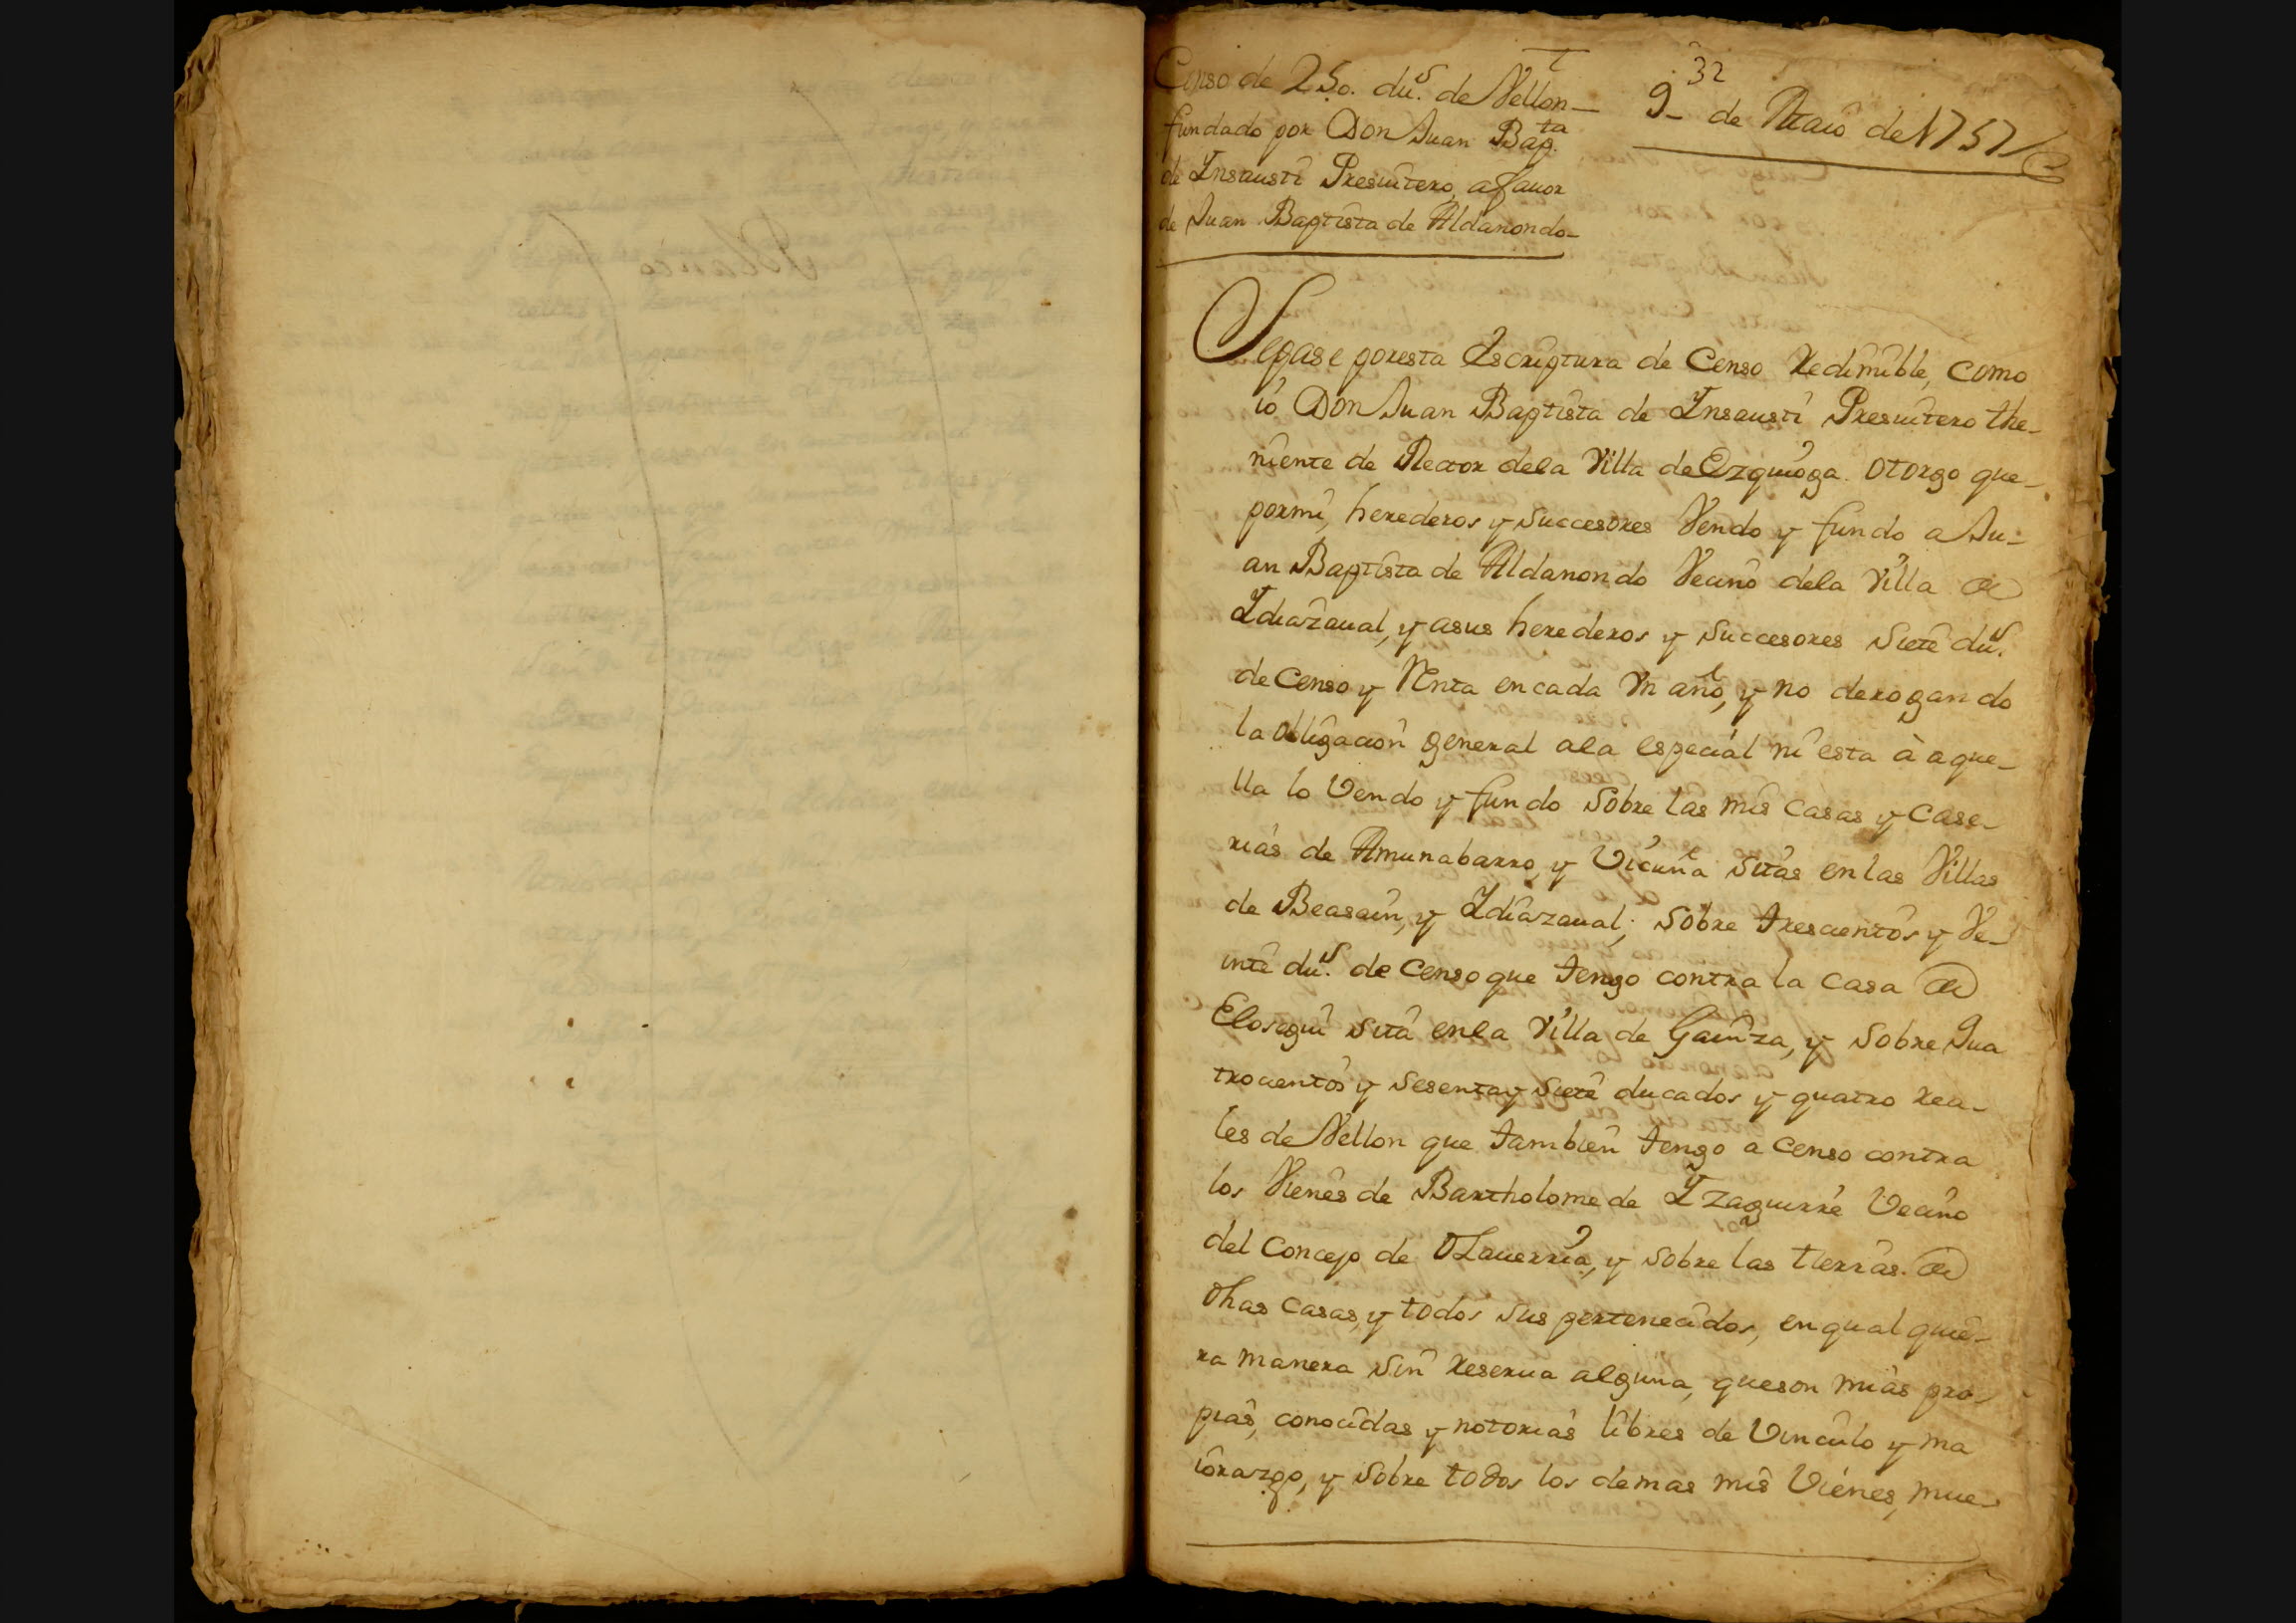 Blanco
Censo de 250. du.ˢ de Vellon
fundado por Don Juan Bap.ta
de Insausti Presuitero, a fauor
de Juan Baptista de Aldanondo
32
9 de Maio de 1757
Sepase por esta Escriptura de Censo Redimible, como
io Don Juan Baptista de Insausti Presuitero the-
niente de Rector dela Villa de Ezquioga otorgo que
por mi, herederos y succesores Vendo y fundo a Ju-
an Baptista de Aldanondo Vecino dela Villa de
Idiazaual, y asus herederos y succesores siete du.ˢ
de Censo y Renta encada Vn año, y no derogando
la obligacion general ala especial ni esta à aque-
lla lo Vendo y fundo sobre las mis Casas y Case-
rias de Amunabarro, y Vicuña sitas en las Villas
de Beasain, y Idiazaual; sobre trescientos y Ve-
inte du.ˢ de Censo que tengo contra la Casa de
Elosegui sita enla Villa de Gainza, y sobre Qua
trocientos y sesenta y siete ducados y quatro Rea-
les de Vellon que tambien tengo a Censo contra
los Vienes de Bartholome de Yzaguirre Vecino
del Concejo de OLauerria, y sobre las tierras de
dhas Casas, y todos sus pertenecidos, en qual quie-
ra manera sin Reserua alguna, que son mias pro-
pias, conocidas y notorias libres de Vinculo y ma
iorazgo, y sobre todos los demas mis Vienes, mue-